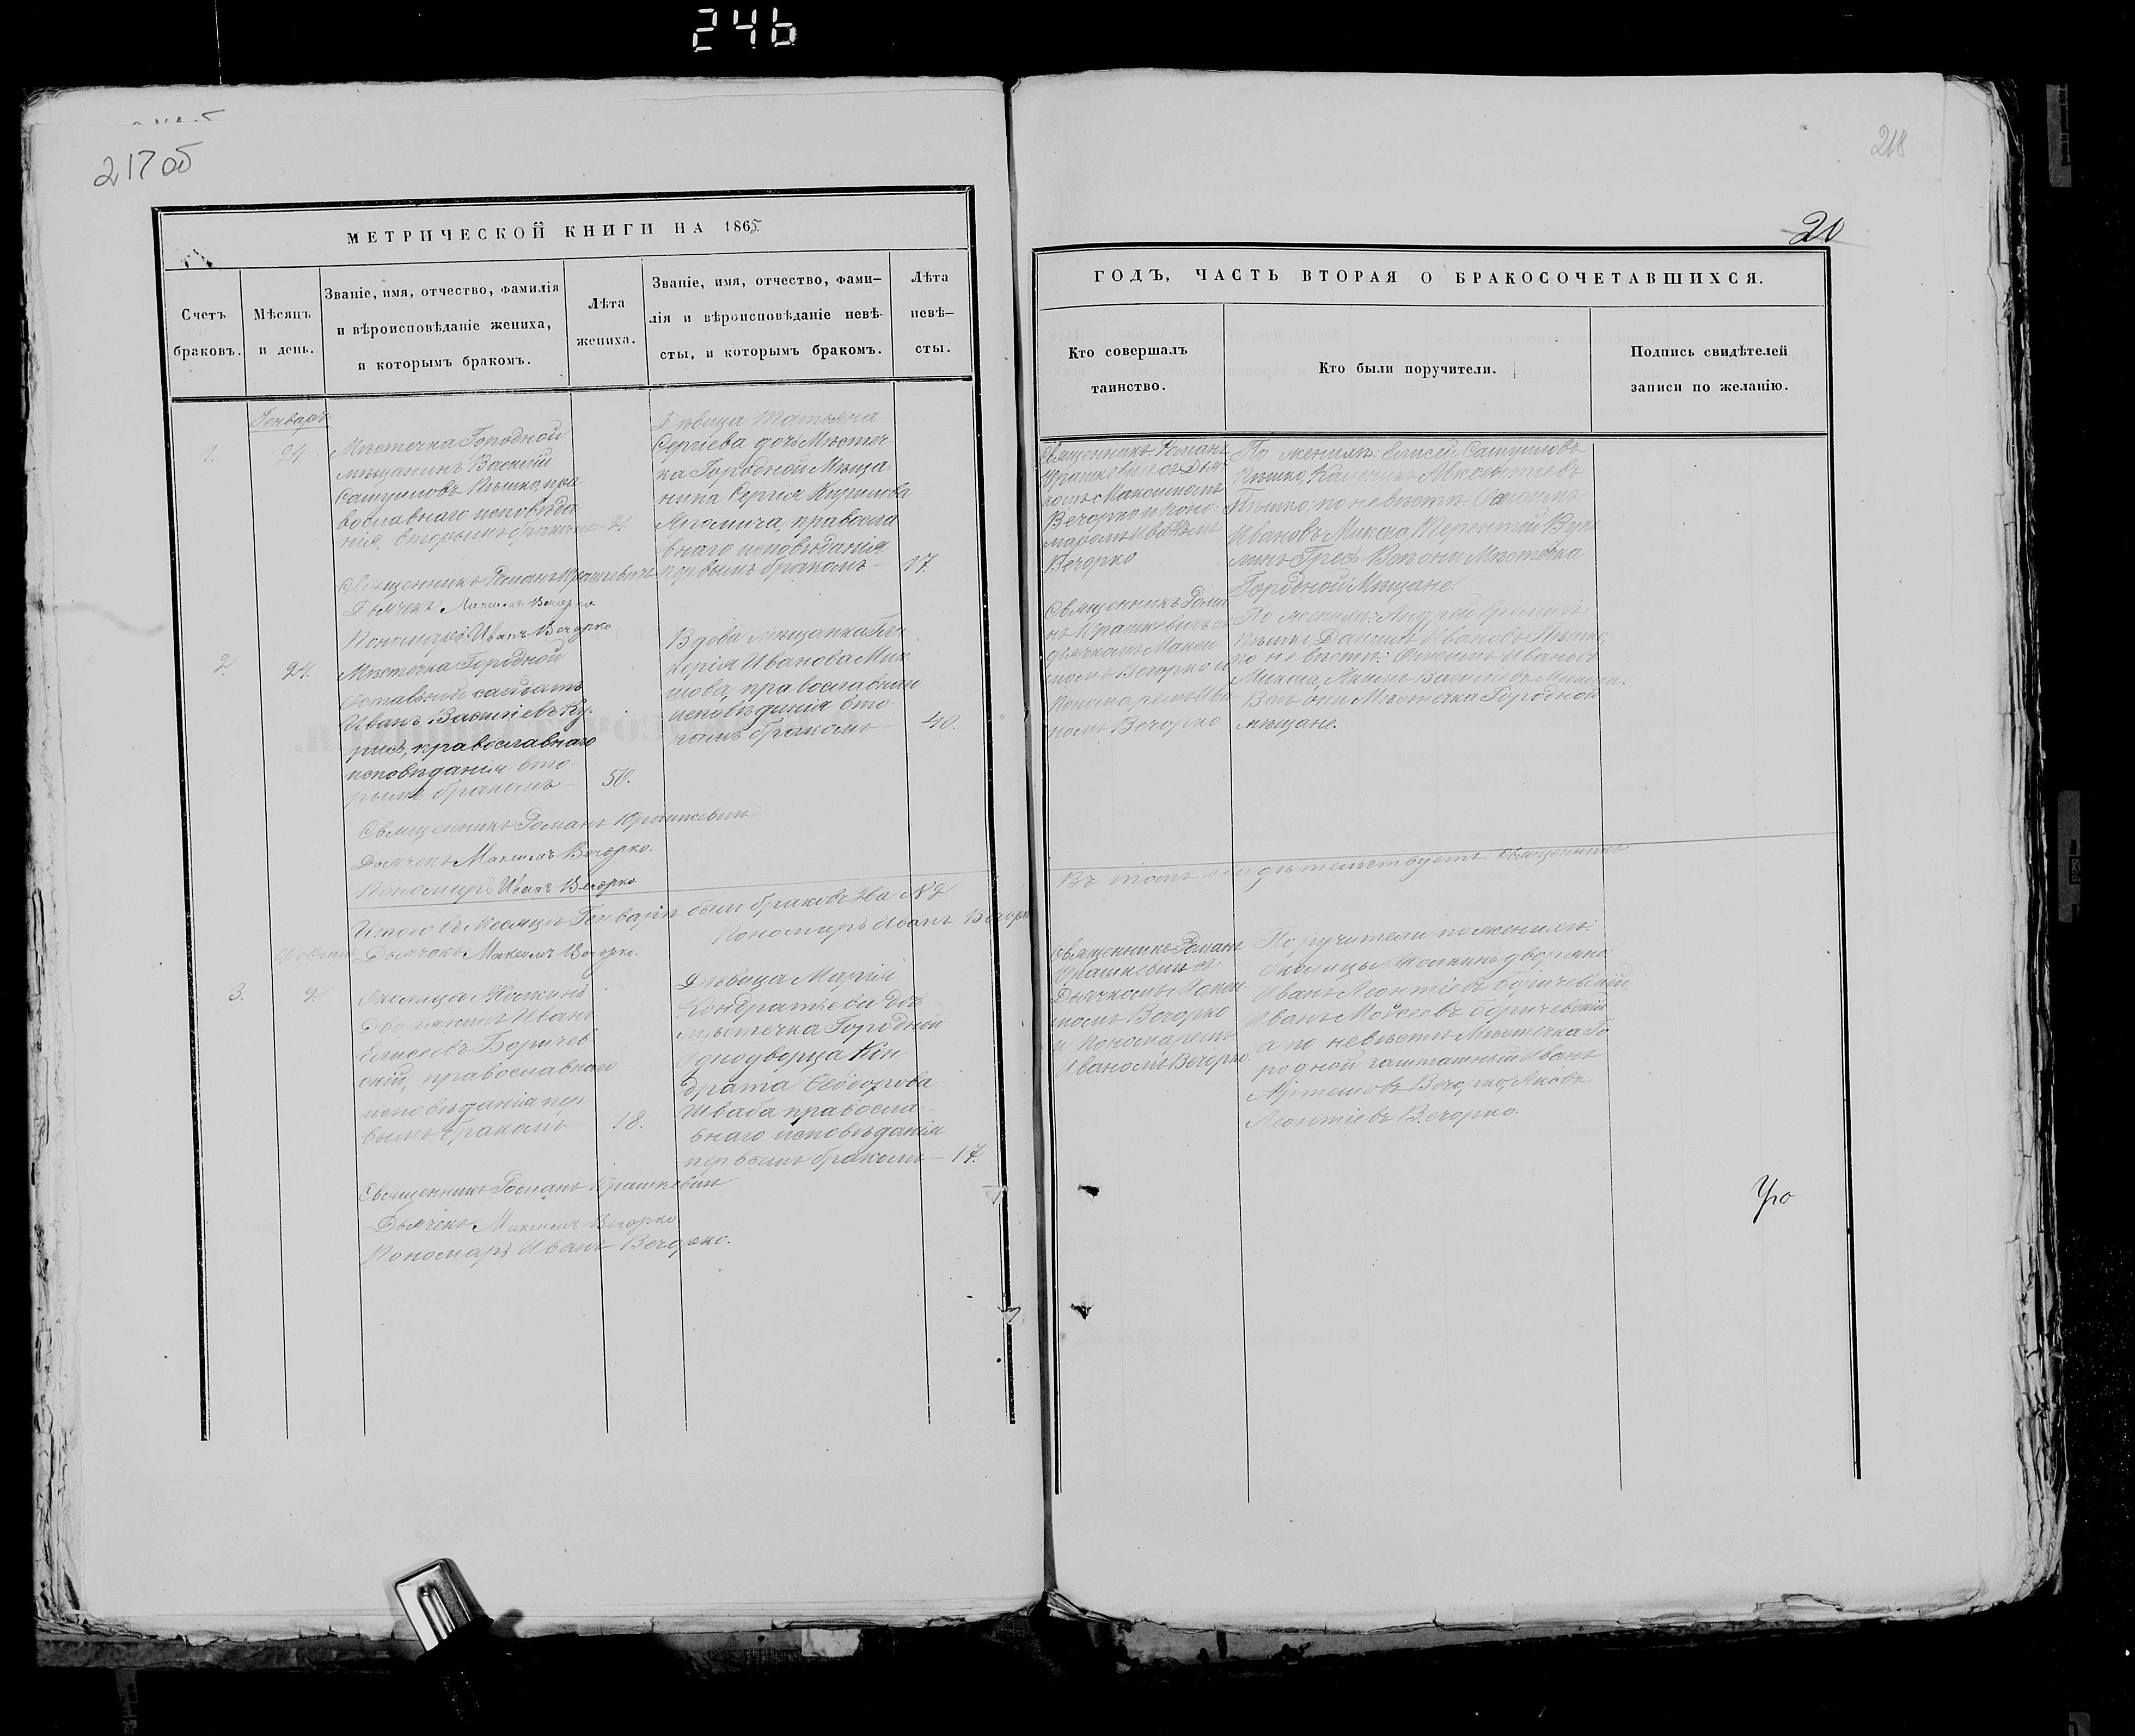 246
217 об
218
20
МЕТРИЧЕСКОЙ КНИГИ НА 1865.
Счетъ
браковъ.
Мѣсяцъ
и день.
Званіе, имя, отчество, фамилія
и вѣроисповѣданіе жениха,
и которымъ бракомъ.
Лѣта
жениха.
Званіе, имя, отчество, фами–
лія и вѣроисповѣданіе невѣ–
сты, и которымъ бракомъ.
Лѣта
невѣ–
сты.
Генварь
1.
24
Мѣстечка Городной
мѣщанинъ Василій
Самуиловъ Пѣшко, пра
вославнаго исповѣда
нія, вторымъ бракомъ 21.
Дѣвица Татьяна
Сергіева дочь Мѣстеч
ка Городной Мѣща
нина Сергія Кирилова
православ
наго исповѣданія
первымъ бракомъ – 17.
Священникъ Романъ Юрашкевичъ
Дьячекъ Максимъ Вечорко.
Пономарь Иванъ Вечорко
2.
24.
Мѣстечка Городной
Отставной солдатъ
Иванъ Василіевъ Ку
рисъ, православнаго
исповѣданія вто
рымъ бракомъ – 50.
Вдова мѣщанка Гли
керія Иванова Мик
шова, православнаго
исповѣданія вто
рымъ бракомъ – 40.
Священникъ Романъ Юрашкевичъ
Дьячекъ Максимъ Вечорко.
Пономарь Иванъ Вечорко
Итого въ Месяцѣ Генварѣ было браковъ два № 2
Пономарь Иванъ Вечорко
Дьячокъ Максимъ Вечорко.
Февраль
3.
2
Околица
Дворянинъ Иванъ
Елисеевъ Боричев
скій, православнаго
исповѣданія пер
вымъ бракомъ 18.
Дѣвица Марія
Кондратьева дочь
мѣстечка Городной
Однодворца Кон
драта Ѳеодорова
Шваба правосла
внаго исповѣданія
первымъ бракомъ – 17.
Священникъ Романъ Юрашкевичъ
Дьячекъ Максимъ Вечорко
Пономарь Иванъ Вечорко.
ГОДЪ, ЧАСТЬ ВТОРАЯ О БРАКОСОЧЕТАВШИХСЯ.
Кто совершалъ
таинство.
Кто были поручители.
Подпись свидѣтелей
записи по желанію.
Священникъ Романъ
Юрашкевичъ съ Дьяч
комъ Максимомъ
Вечорко и поно
маремъ Иваномъ
Вечорко
По женихѣ: Елисей Самуиловъ
Пѣшко, Авксентіевъ
Пѣшко; по невѣстѣ:
Ивановъ Микша, Терентій
Гресь. Всѣ они Мѣстечка
Городной Мѣщане.
Священникъ Рома
нъ Юрашкевичъ съ
дьячкомъ Макси
момъ Вечорко и
Пономаремъ Ива
номъ Вечорко.
По женихѣ: Андрей
Пѣшко Даніилъ Ивановъ Пѣшко;
по невѣстѣ: Онисимъ Ивановъ
Микша, Якимъ Василіевъ Микша.
Всѣ они Мѣстечка Городной
мѣщане.
Въ томъ свидѣтельствуетъ: Священникъ
Священникъ Романъ
Юрашкевичъ съ
Дьячкомъ Макси
момъ Вечорко
и Пономаремъ
Иваномъ Вечорко.
Поручители по женихѣ:
околицы дворяне
Иванъ Леонтіевъ Боричевскій,
Иванъ Моисеевъ Боричевскій
а по невѣстѣ Мѣстечка Го
родной заштатный Иванъ
Артемовъ Вечорко, Яковъ
Леонтіевъ Вечорко.